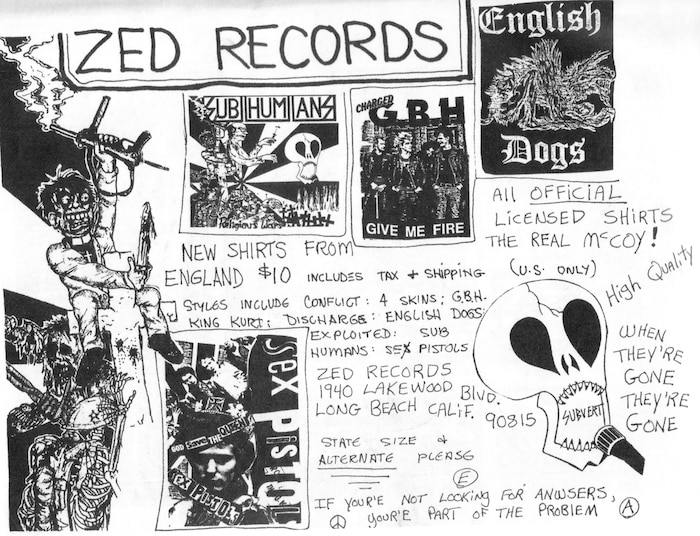 ZED RECORDS
SUBHUMANS
Religious Wars
CHARGED
G.B.H
GIVE ME FIRE
English
Dogs
All OFFICIAL
LICENSED SHIRTS
THE REAL McCOY!
(U.S. ONLY)
High Quality
NEW SHIRTS FROM
ENGLAND $10 INCLUDES TAX + SHIPPING
STYLES INCLUDE CONFLICT: 4 SKINS; G.B.H.
KING KURT; DISCHARGE: ENGLISH DOGS:
EXPLOITED: SUB
HUMANS: SEX PISTOLS
ZED RECORDS
1940 LAKEWOOD BLVD.
LONG BEACH CALIF. 90815
STATE SIZE +
ALTERNATE PLEASE
SUBVERT
WHEN
THEY'RE
GONE
THEY'RE
GONE
sex pistols
GOD Save THE QUEEN
sex PISTOLS
E
IF YOUR'E NOT LOOKING FOR ANWSERS,
YOUR'E PART OF THE PROBLEM A